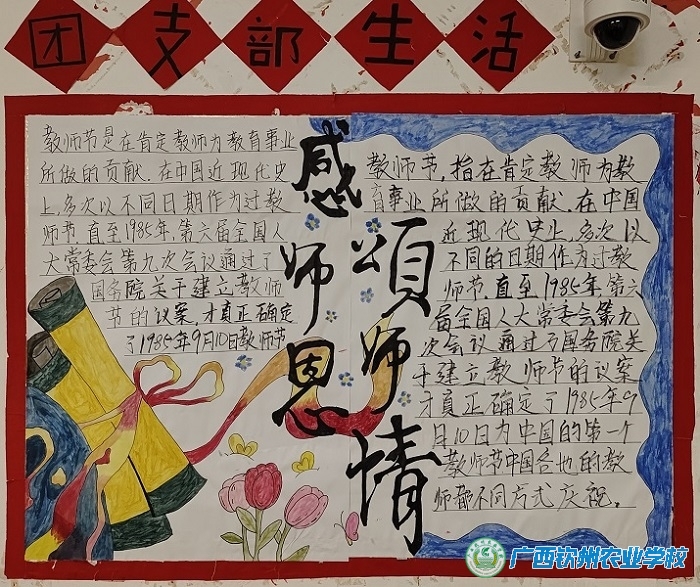 团支部生活
教师节是在肯定教师为教育事业
所做的贡献.在中国近现代史
上,多次以不同日期作为过教
师节.直至1985年,第六届全国人
大常委会第九次会议通过了
国务院关于建立教师
节的议案,才真正确定
了1985年9月10日教师节
感师恩
颂师情
教师节,指在肯定教师为教
育事业所做的贡献.在中国
近现代史上,多次以
不同的日期作为过教
师节.直至1985年,第六
届全国人大常委会第九
次会议通过了国务院关
于建立教师节的议案
才真正确定了1985年9
月10日为中国的第一个
教师节中国各地的教
师都不同方式庆祝。
广西钦州农业学校